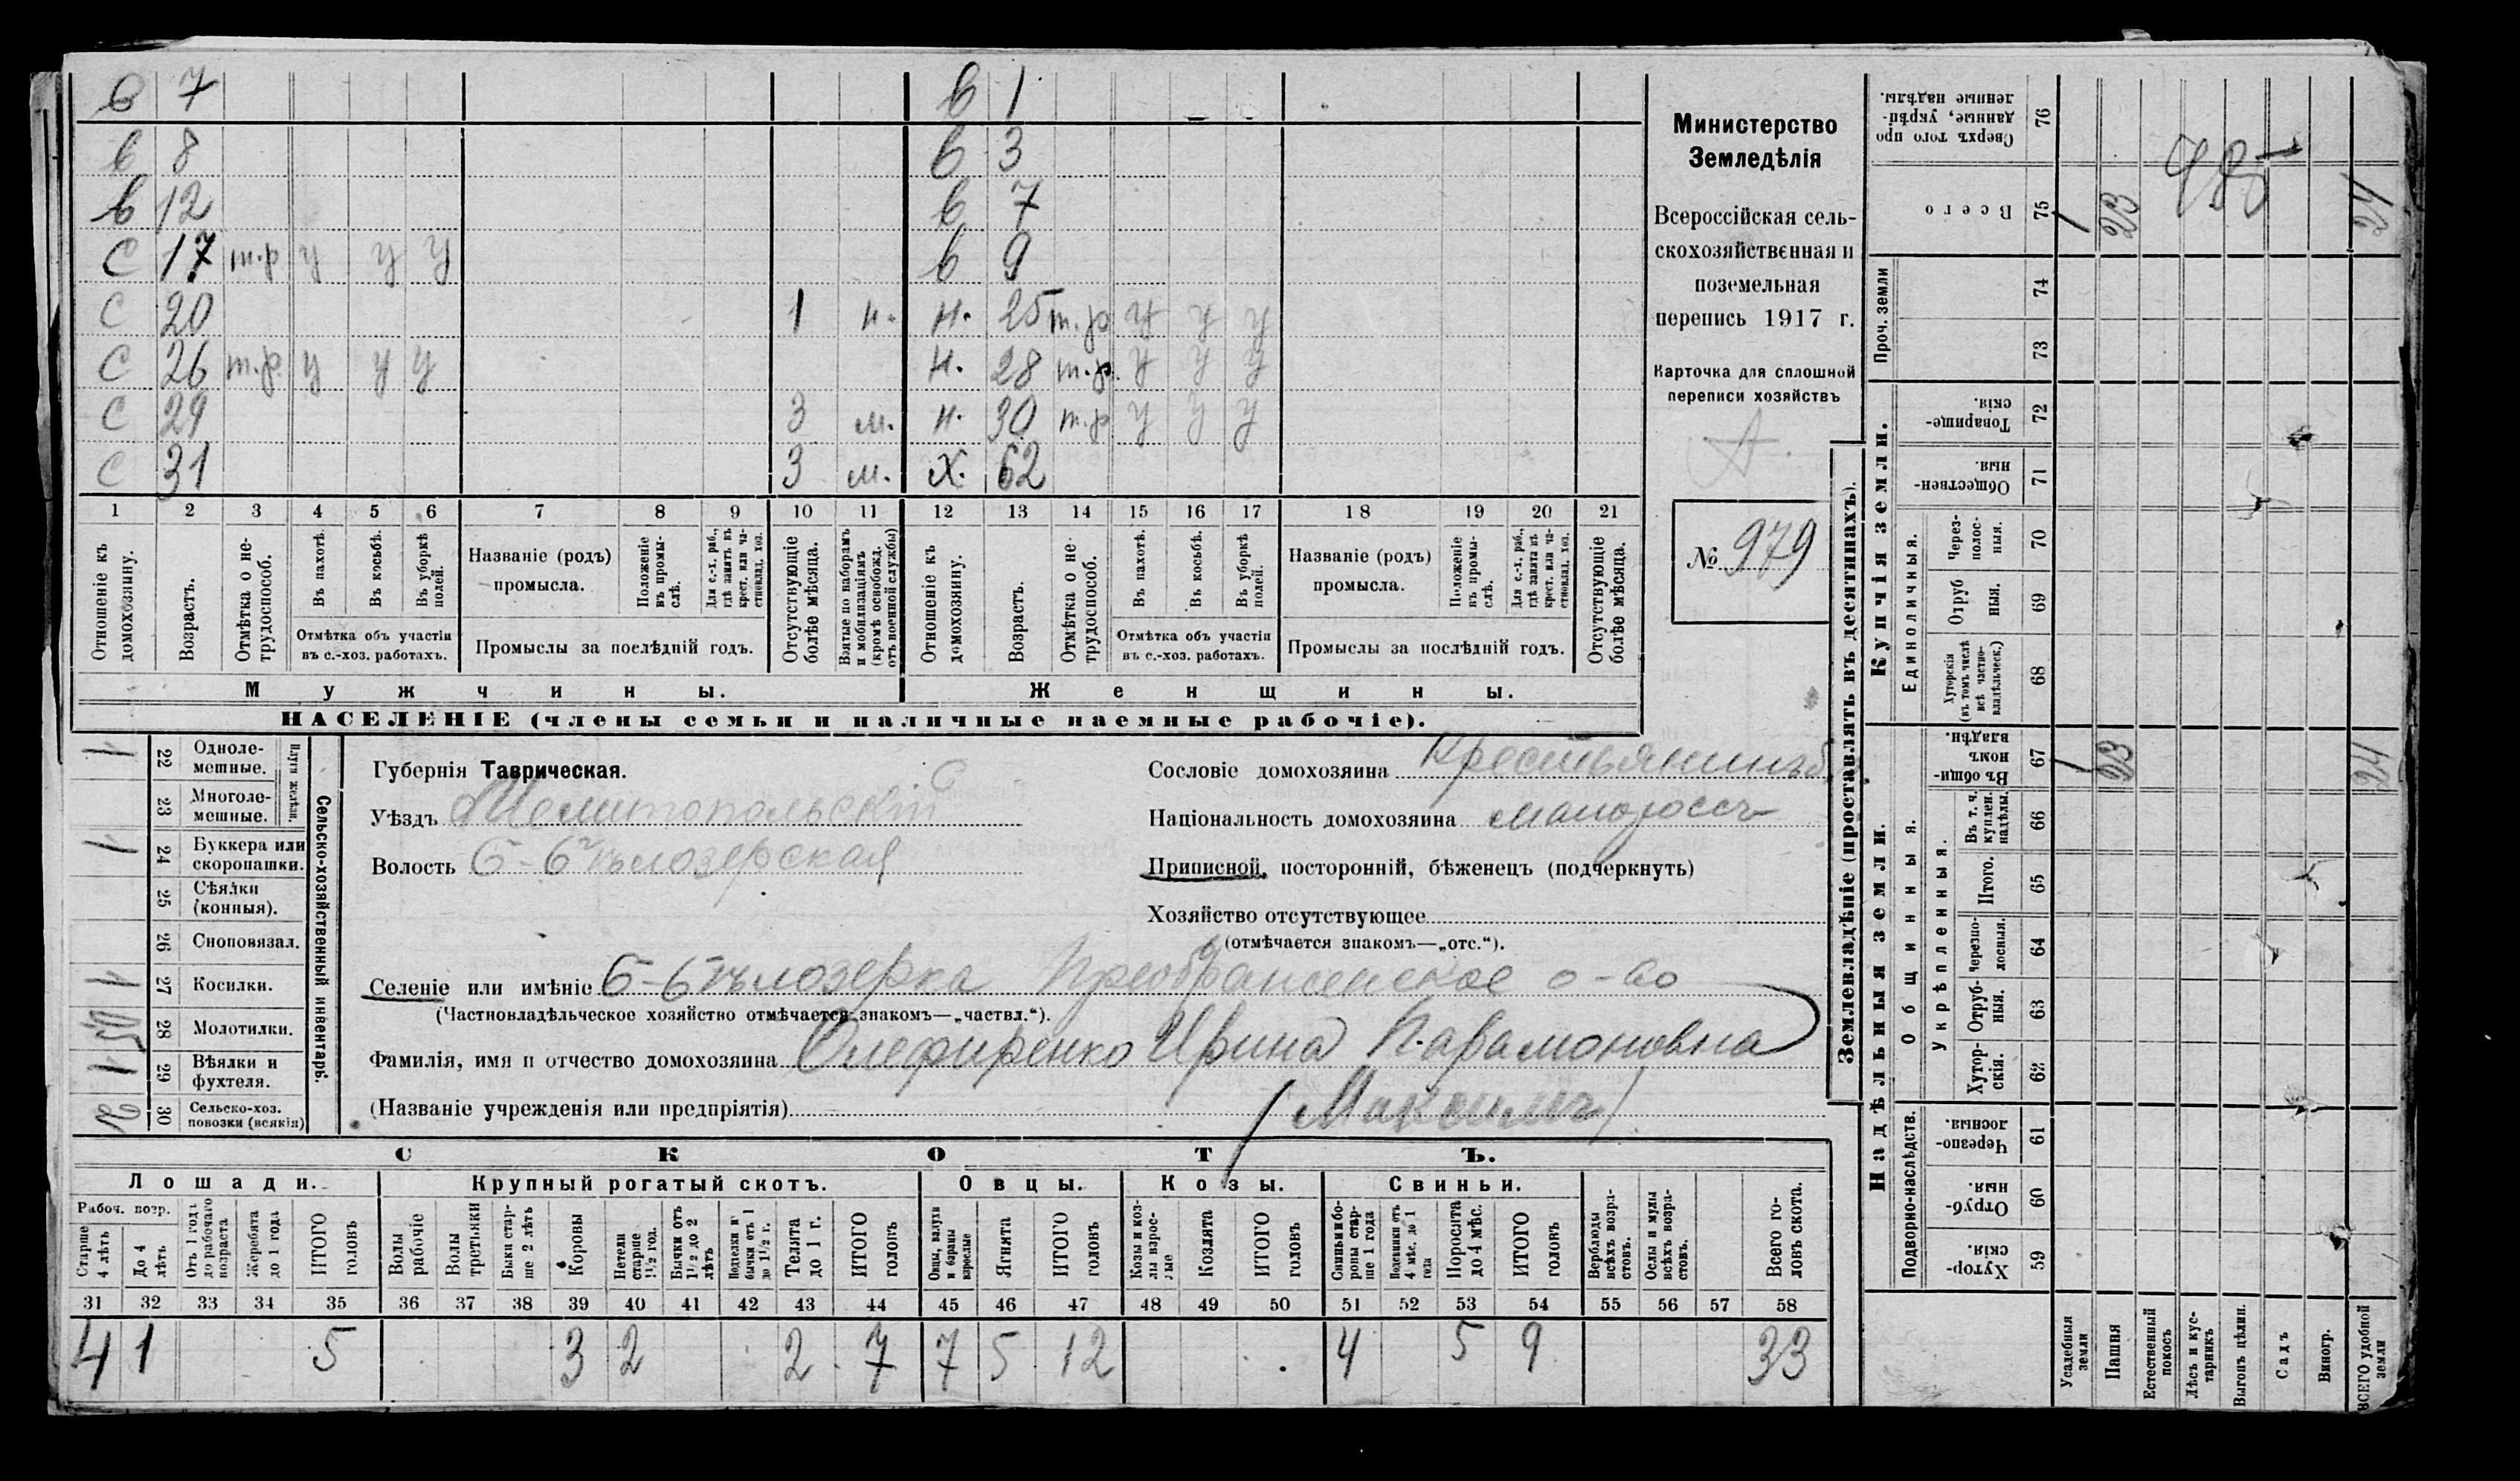 в 7 в 1
в 8 в 3
в 12 в 7
С 17 т.р у у у в 9
С 20 1 н. н. 25 т.р у у у
С 26 т.р у у у н. 28 т.р. у у у
С 29 3 м. н. 30 т.р у у у
С 31 3 м. Х. 62
1 2 3 4 5 6 7 8 9 10 11 12 13 14 15 16 17 18 19 20 21
Отношеніе къ домохозяину.
Возрастъ.
Отмѣтка о нетрудоспособ.
Въ пахотѣ.
Въ косьбѣ.
Въ уборкѣ полей.
Отмѣтка объ участіи
въ с.-хоз. работахъ.
Названіе (родъ)
промысла.
Положеніе въ промыслѣ.
Для с.-х. раб., гдѣ занятъ въ крест. или частновлад. хоз.
Промыслы за послѣдній годъ.
Отсутствующіе болѣе мѣсяца.
Взятые по наборамъ и мобилизаціямъ (кромѣ освобожд. отъ военной службы)
Отношеніе къ домохозяину.
Возрастъ.
Отмѣтка о нетрудоспособ.
Въ пахотѣ.
Въ косьбѣ.
Въ уборкѣ полей.
Отмѣтка объ участіи
въ с.-хоз. работахъ.
Названіе (родъ)
промысла.
Положеніе въ промыслѣ.
Для с.-х. раб., гдѣ занята въ крест. или частновлад. хоз.
Промыслы за послѣдній годъ.
Отсутствующіе болѣе мѣсяца.
Мужчины. Женщины.
НАСЕЛЕНІЕ (члены семьи и наличные наемные рабочіе).
Министерство
Земледѣлія
Всероссійская сель-
скохозяйственная и
поземельная
перепись 1917 г.
Карточка для сплошной
переписи хозяйствъ
А.
№ 979
Сельско-хозяйственный инвентарь.
Плуги желѣзн.
1 22 Одноле-
мешные.
23 Многоле-
мешные.
1 24 Буккера или
скоропашки.
25 Сѣялки
(конныя).
26 Сноповязал.
1 27 Косилки.
28 Молотилки.
1 29 Вѣялки и
фухтеля.
2 30 Сельско-хоз.
повозки (всякія)
Губернія Таврическая.
Уѣздъ Мелитопольскій
Волость Б-Бѣлозерская
Сословіе домохозяина Крестьянинъ
Національность домохозяина малороссъ
Приписной, посторонній, бѣженецъ (подчеркнуть)
Хозяйство отсутствующее
(отмѣчается знакомъ—„отс.“).
Селеніе или имѣніе Б-Бѣлозерка Преображенское о-во
(Частновладѣльческое хозяйство отмѣчается знакомъ—„частвл.“).
Фамилія, имя и отчество домохозяина Олефиренко Ирина Парамоновна
(Названіе учрежденія или предпріятія) /Максимъ/
СКОТЪ.
Лошади. Крупный рогатый скотъ. Овцы. Козы. Свиньи.
Рабоч. возр.
Старше 4 лѣтъ
До 4 лѣтъ
Отъ 1 года до рабочаго возраста
Жеребята до 1 года
ИТОГО головъ
Волы рабочіе
Волы третьяки
Быки старше 2 лѣтъ
Коровы
Нетели старше 1½ год.
Бычки отъ 1½ до 2 лѣтъ
Подтелки и бычки отъ 1 до 1½ г.
Телята до 1 г.
ИТОГО головъ
Овцы, валухи и бараны взрослые
Ягнята
ИТОГО головъ
Козы и козлы взрослые
Козлята
ИТОГО головъ
Свиньи и боровы старше 1 года
Подсвинки отъ 4 мѣс. до 1 года
Поросята до 4 мѣс.
ИТОГО головъ
Верблюды всѣхъ возрастовъ.
Ослы и мулы всѣхъ возрастовъ.
Всего головъ скота.
31 32 33 34 35 36 37 38 39 40 41 42 43 44 45 46 47 48 49 50 51 52 53 54 55 56 57 58
4 1 5 3 2 2 7 7 5 12 4 5 9 33
Землевладѣніе (проставлять въ десятинахъ).
Надѣльныя земли. Купчія земли. Проч. земли
Подворно-наслѣдств. Общинныя. Укрѣпленныя. Единоличныя.
Хуторскія. 59
Отрубныя. 60
Черезполосныя. 61
Хуторскія. 62
Отрубныя. 63
Черезполосныя. 64
Итого. 65
Въ т. ч. куплен. надѣлы. 66
Въ общинномъ владѣн. 67
Хуторскія (въ томъ числѣ всѣ частновладѣльческ.) 68
Отрубныя. 69
Черезполосныя. 70
Общественныя. 71
Товарищескія. 72
73
74
Всего 75
Сверхъ того проданные, укрѣпленные надѣлы. 76
Усадебныя земли
Пашня 23 23
Естественный покосъ
Лѣсъ и кустарникъ
Выгонъ цѣлин.
Садъ
Виногр.
ВСЕГО удобной земли